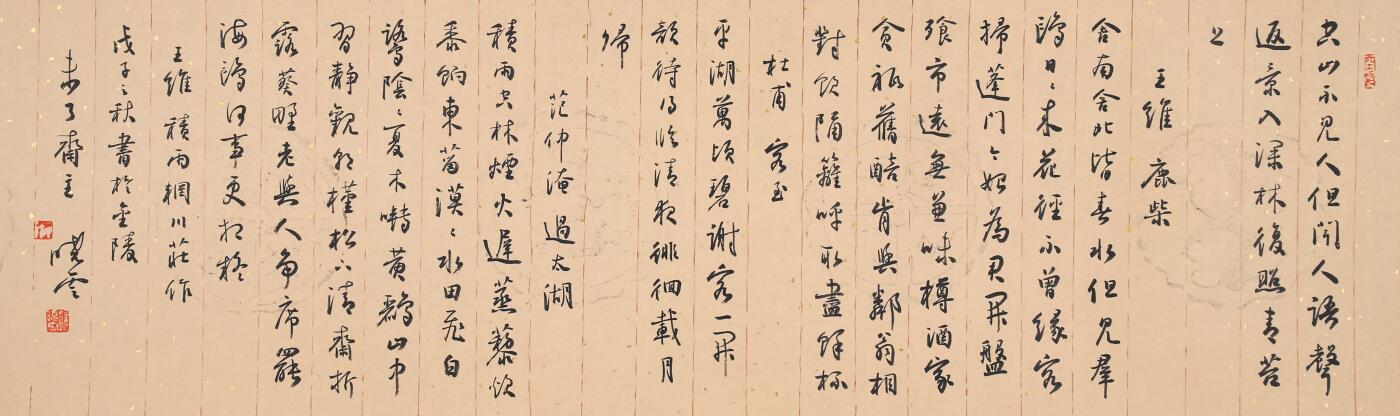 空山不見人但聞人語聲
返景入深林復照青苔
上
王維 鹿柴
舍南舍北皆春水但見羣
鷗日〻來花徑不曾緣客
掃蓬門今始為君開盤
飱市遠無兼味樽酒家
貧祗舊醅肯與鄰翁相
對飲隔籬呼取盡餘杯
杜甫 客至
平湖萬頃碧謝客一開
顏待得臨清夜徘徊載月
歸
范仲淹 過太湖
積雨空林煙火遲蒸藜炊
黍餉東菑漠〻水田飛白
鷺陰〻夏木囀黃鸝山中
習靜觀朝槿松下清齋折
露葵野老與人爭席罷
海鷗何事更相疑
王維 積雨輞川莊作
戊子之秋書於金陵
未了齋主 曉雲